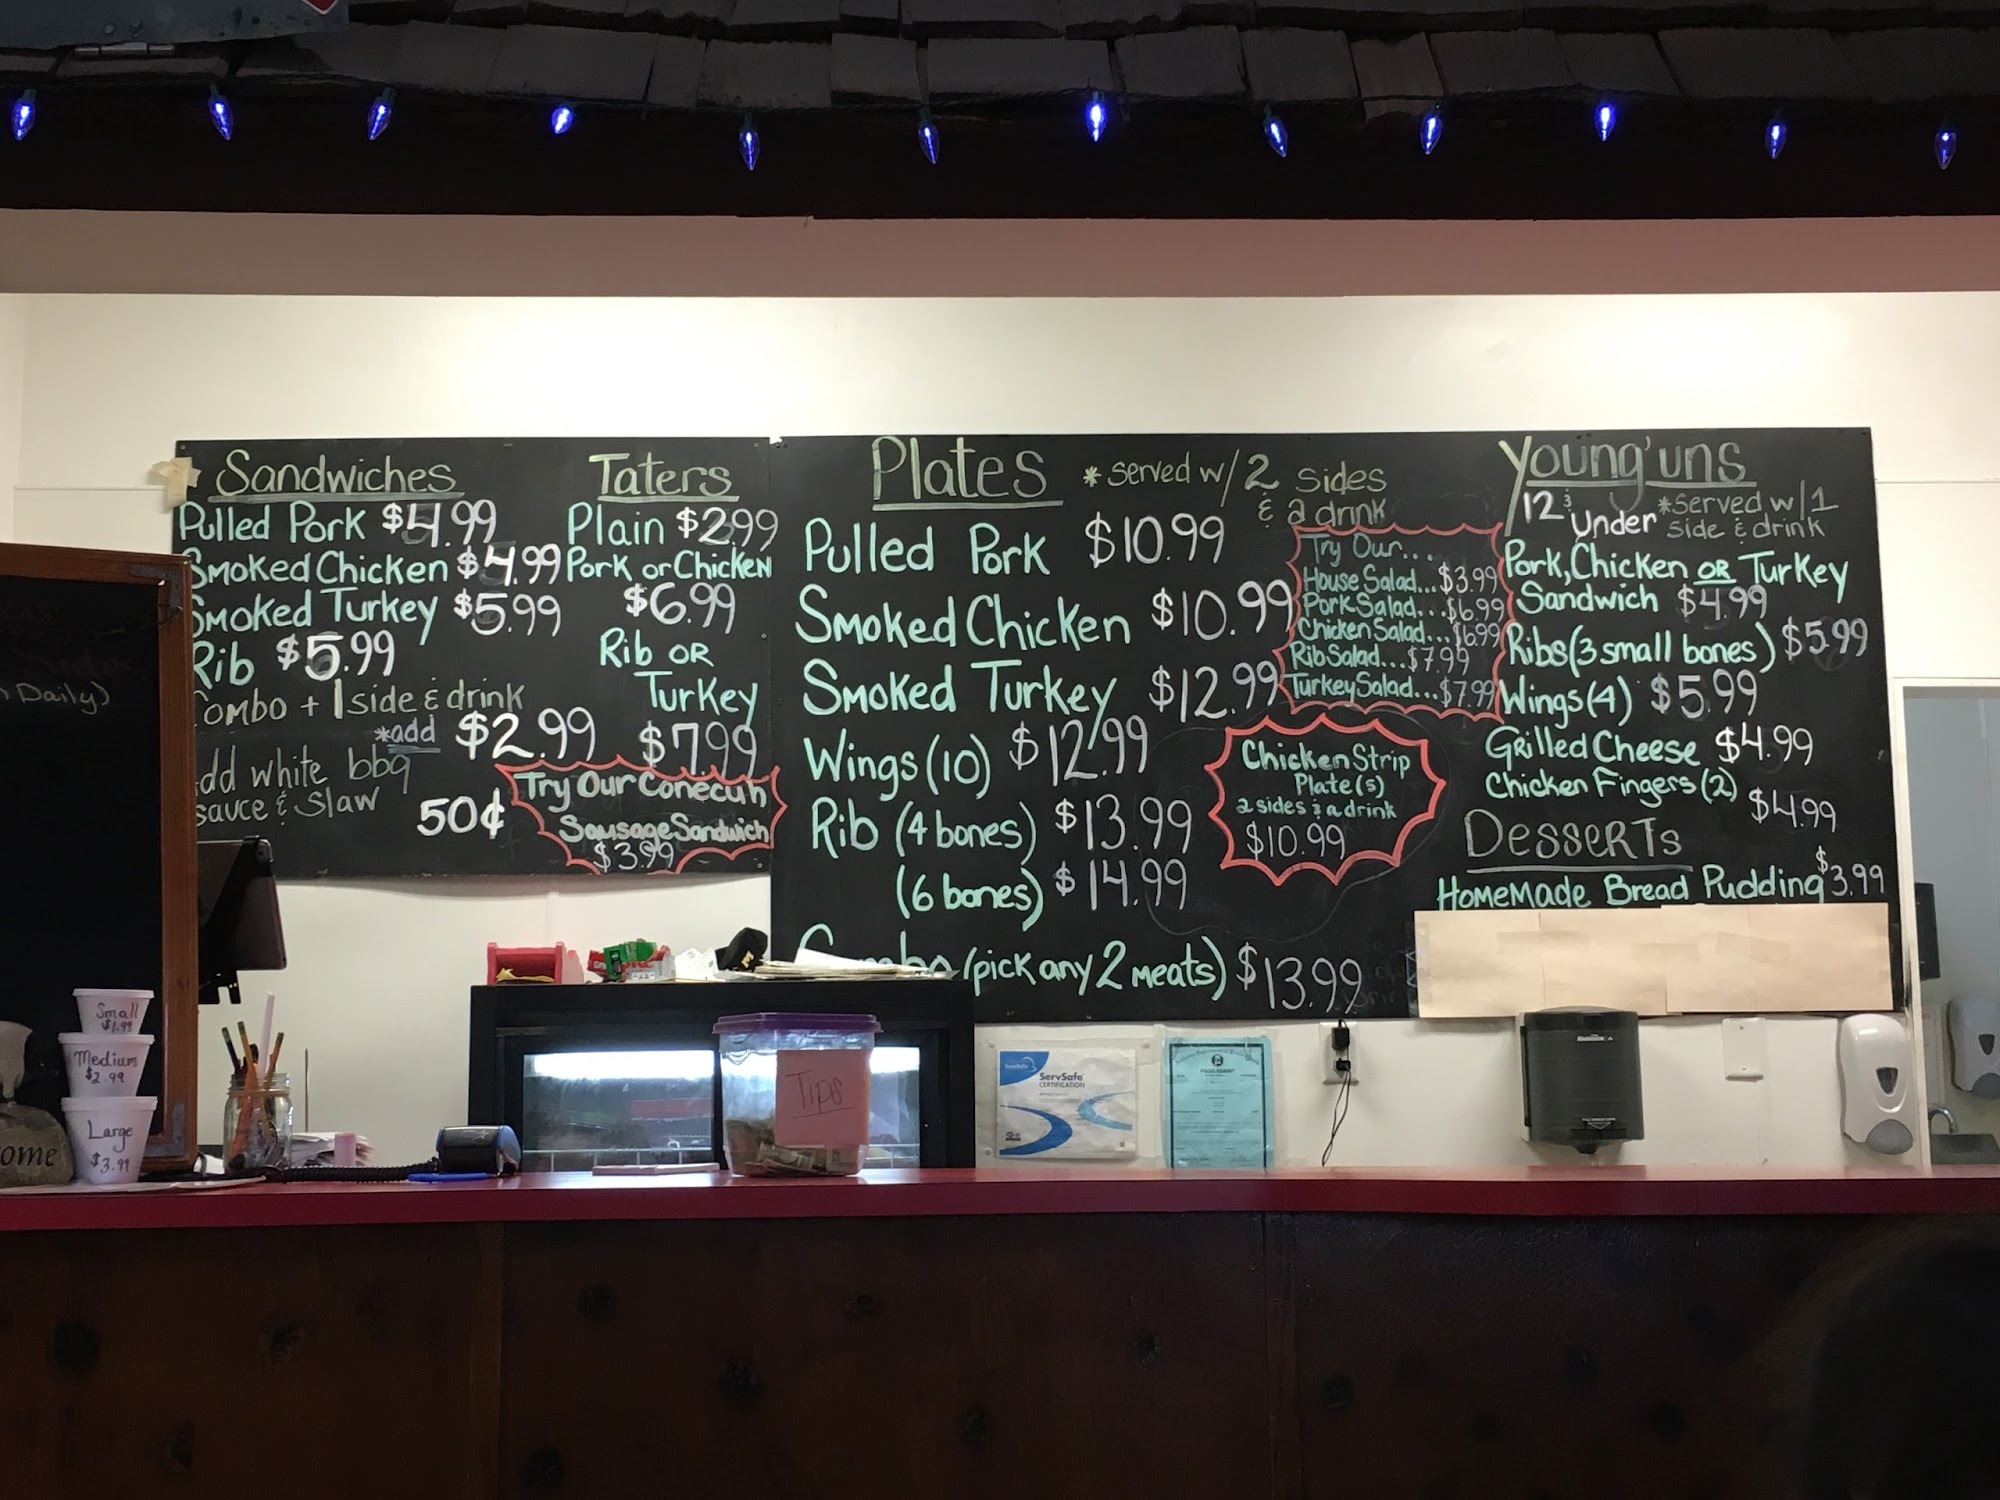 Sandwiches
Pulled Pork $4.99
Smoked Chicken $4.99
Smoked Turkey $5.99
Rib $5.99
Combo + 1 side & drink
*add $2.99
Add white bbq
sauce & slaw 50¢
Taters
Plain $2.99
Pork or Chicken
$6.99
Rib or
Turkey
$7.99
Try Our Conecuh
Sausage Sandwich
$3.99
Plates *served w/ 2 sides
& a drink
Pulled Pork $10.99
Smoked Chicken $10.99
Smoked Turkey $12.99
Wings (10) $12.99
Rib (4 bones) $13.99
(6 bones) $14.99
Combo (pick any 2 meats) $13.99
Try Our...
House Salad...$3.99
Pork Salad...$6.99
Chicken Salad...$6.99
Rib Salad...$7.99
Turkey Salad...$7.99
Chicken Strip
Plate(s)
2 sides & a drink
$10.99
Young'uns
12 & Under *Served w/1
side & drink
Pork, Chicken or Turkey
Sandwich $4.99
Ribs (3 small bones) $5.99
Wings (4) $5.99
Grilled Cheese $4.99
Chicken Fingers (2)
$4.99
Desserts
Homemade Bread Pudding $3.99
Daily)
Small
$1.99
Medium
$2.99
Large
$3.99
ome
Tips
ServSafe
CERTIFICATION